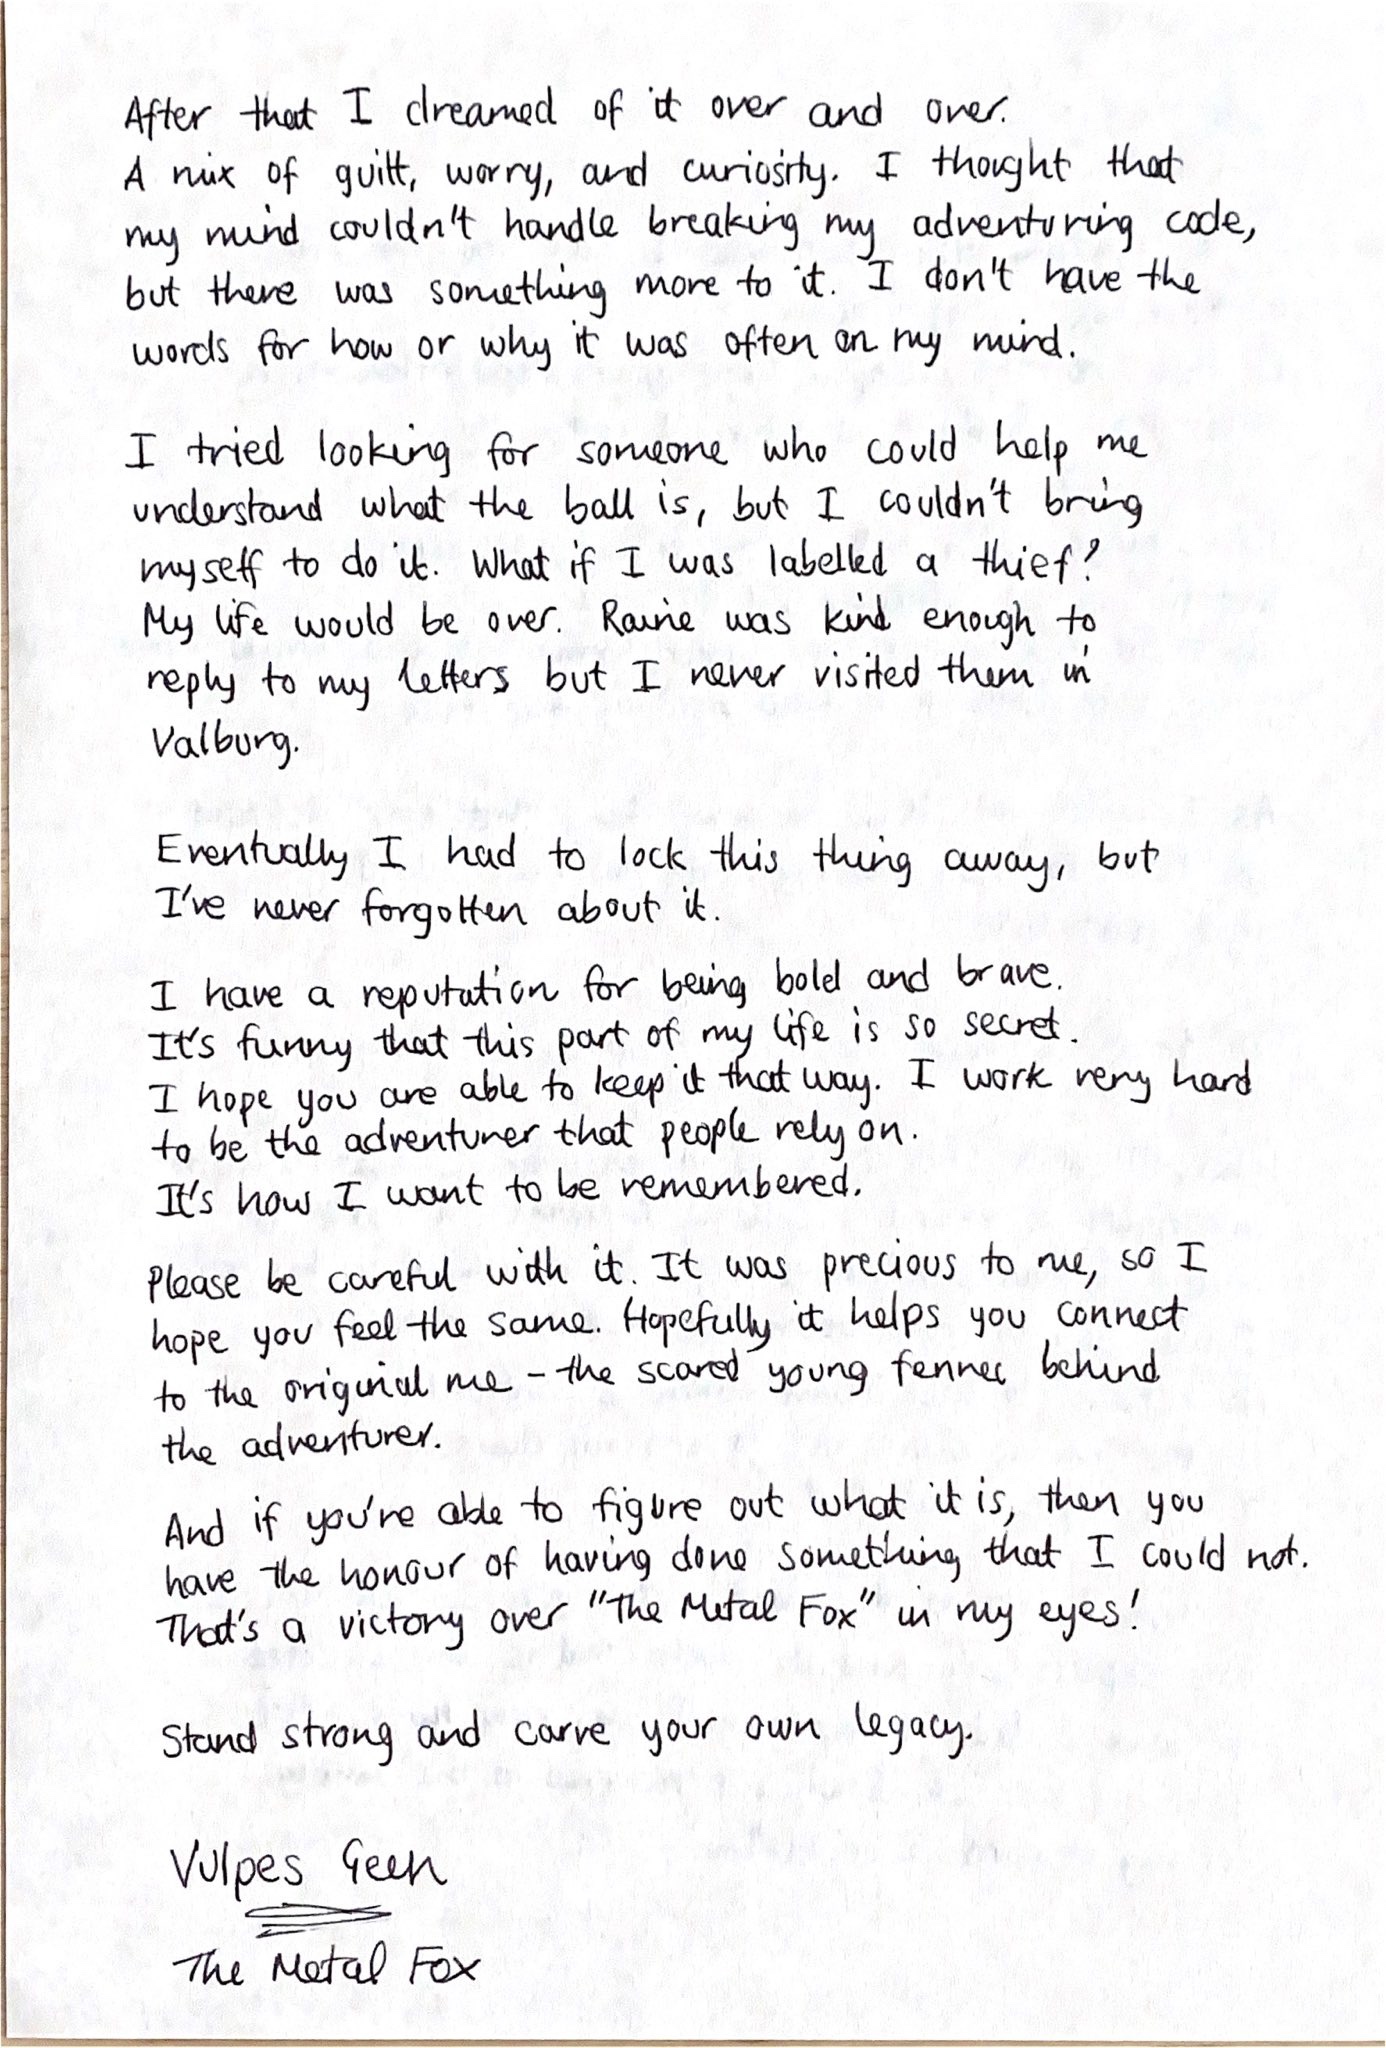 After that I dreamed of it over and over.
A mix of guilt, worry, and curiosity. I thought that
my mind couldn't handle breaking my adventuring code,
but there was something more to it. I don't have the
words for how or why it was often on my mind.
I tried looking for someone who could help me
understand what the ball is, but I couldn't bring
myself to do it. What if I was labelled a thief?
My life would be over. Raine was kind enough to
reply to my letters but I never visited them in
Valburg.
Eventually I had to lock this thing away, but
I've never forgotten about it.
I have a reputation for being bold and brave.
It's funny that this part of my life is so secret.
I hope you are able to keep it that way. I work very hard
to be the adventurer that people rely on.
It's how I want to be remembered.
Please be careful with it. It was precious to me, so I
hope you feel the same. Hopefully it helps you connect
to the original me - the scared young fennec behind
the adventurer.
And if you're able to figure out what it is, then you
have the honour of having done something that I could not.
That's a victory over "The Metal Fox" in my eyes!
Stand strong and carve your own legacy.
Vulpes Geen
The Metal Fox